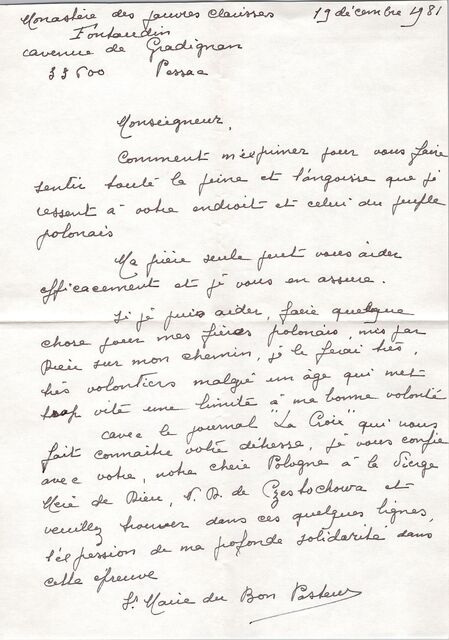 Monastère des pauvres clarisses 19 décembre 1981
Fontaudin
avenue de Gradignan
33600 Pessac
Monseigneur,
Comment m'exprimer pour vous faire
sentir toute la peine et l'angoisse que je
ressent à votre endroit et celui du peuple
polonais
Ma prière seule peut vous aider
efficacement et je vous en assure.
Si je puis aider, faire quelque
chose pour mes frères polonais, mis par
Dieu sur mon chemin, je le ferai très,
très volontiers malgré un âge qui met
trop vite une limite à me bonne volonté
avec le journal "La Croix" qui nous
fait connaître votre détresse, je vous confie
avec votre, notre chère Pologne à la Vierge
Mère de Dieu, N. D. de Częstochowa et
veuillez trouver dans ces quelques lignes,
l'expression de ma profonde solidarité dans
cette épreuve
Sr Marie du Bon Pasteur